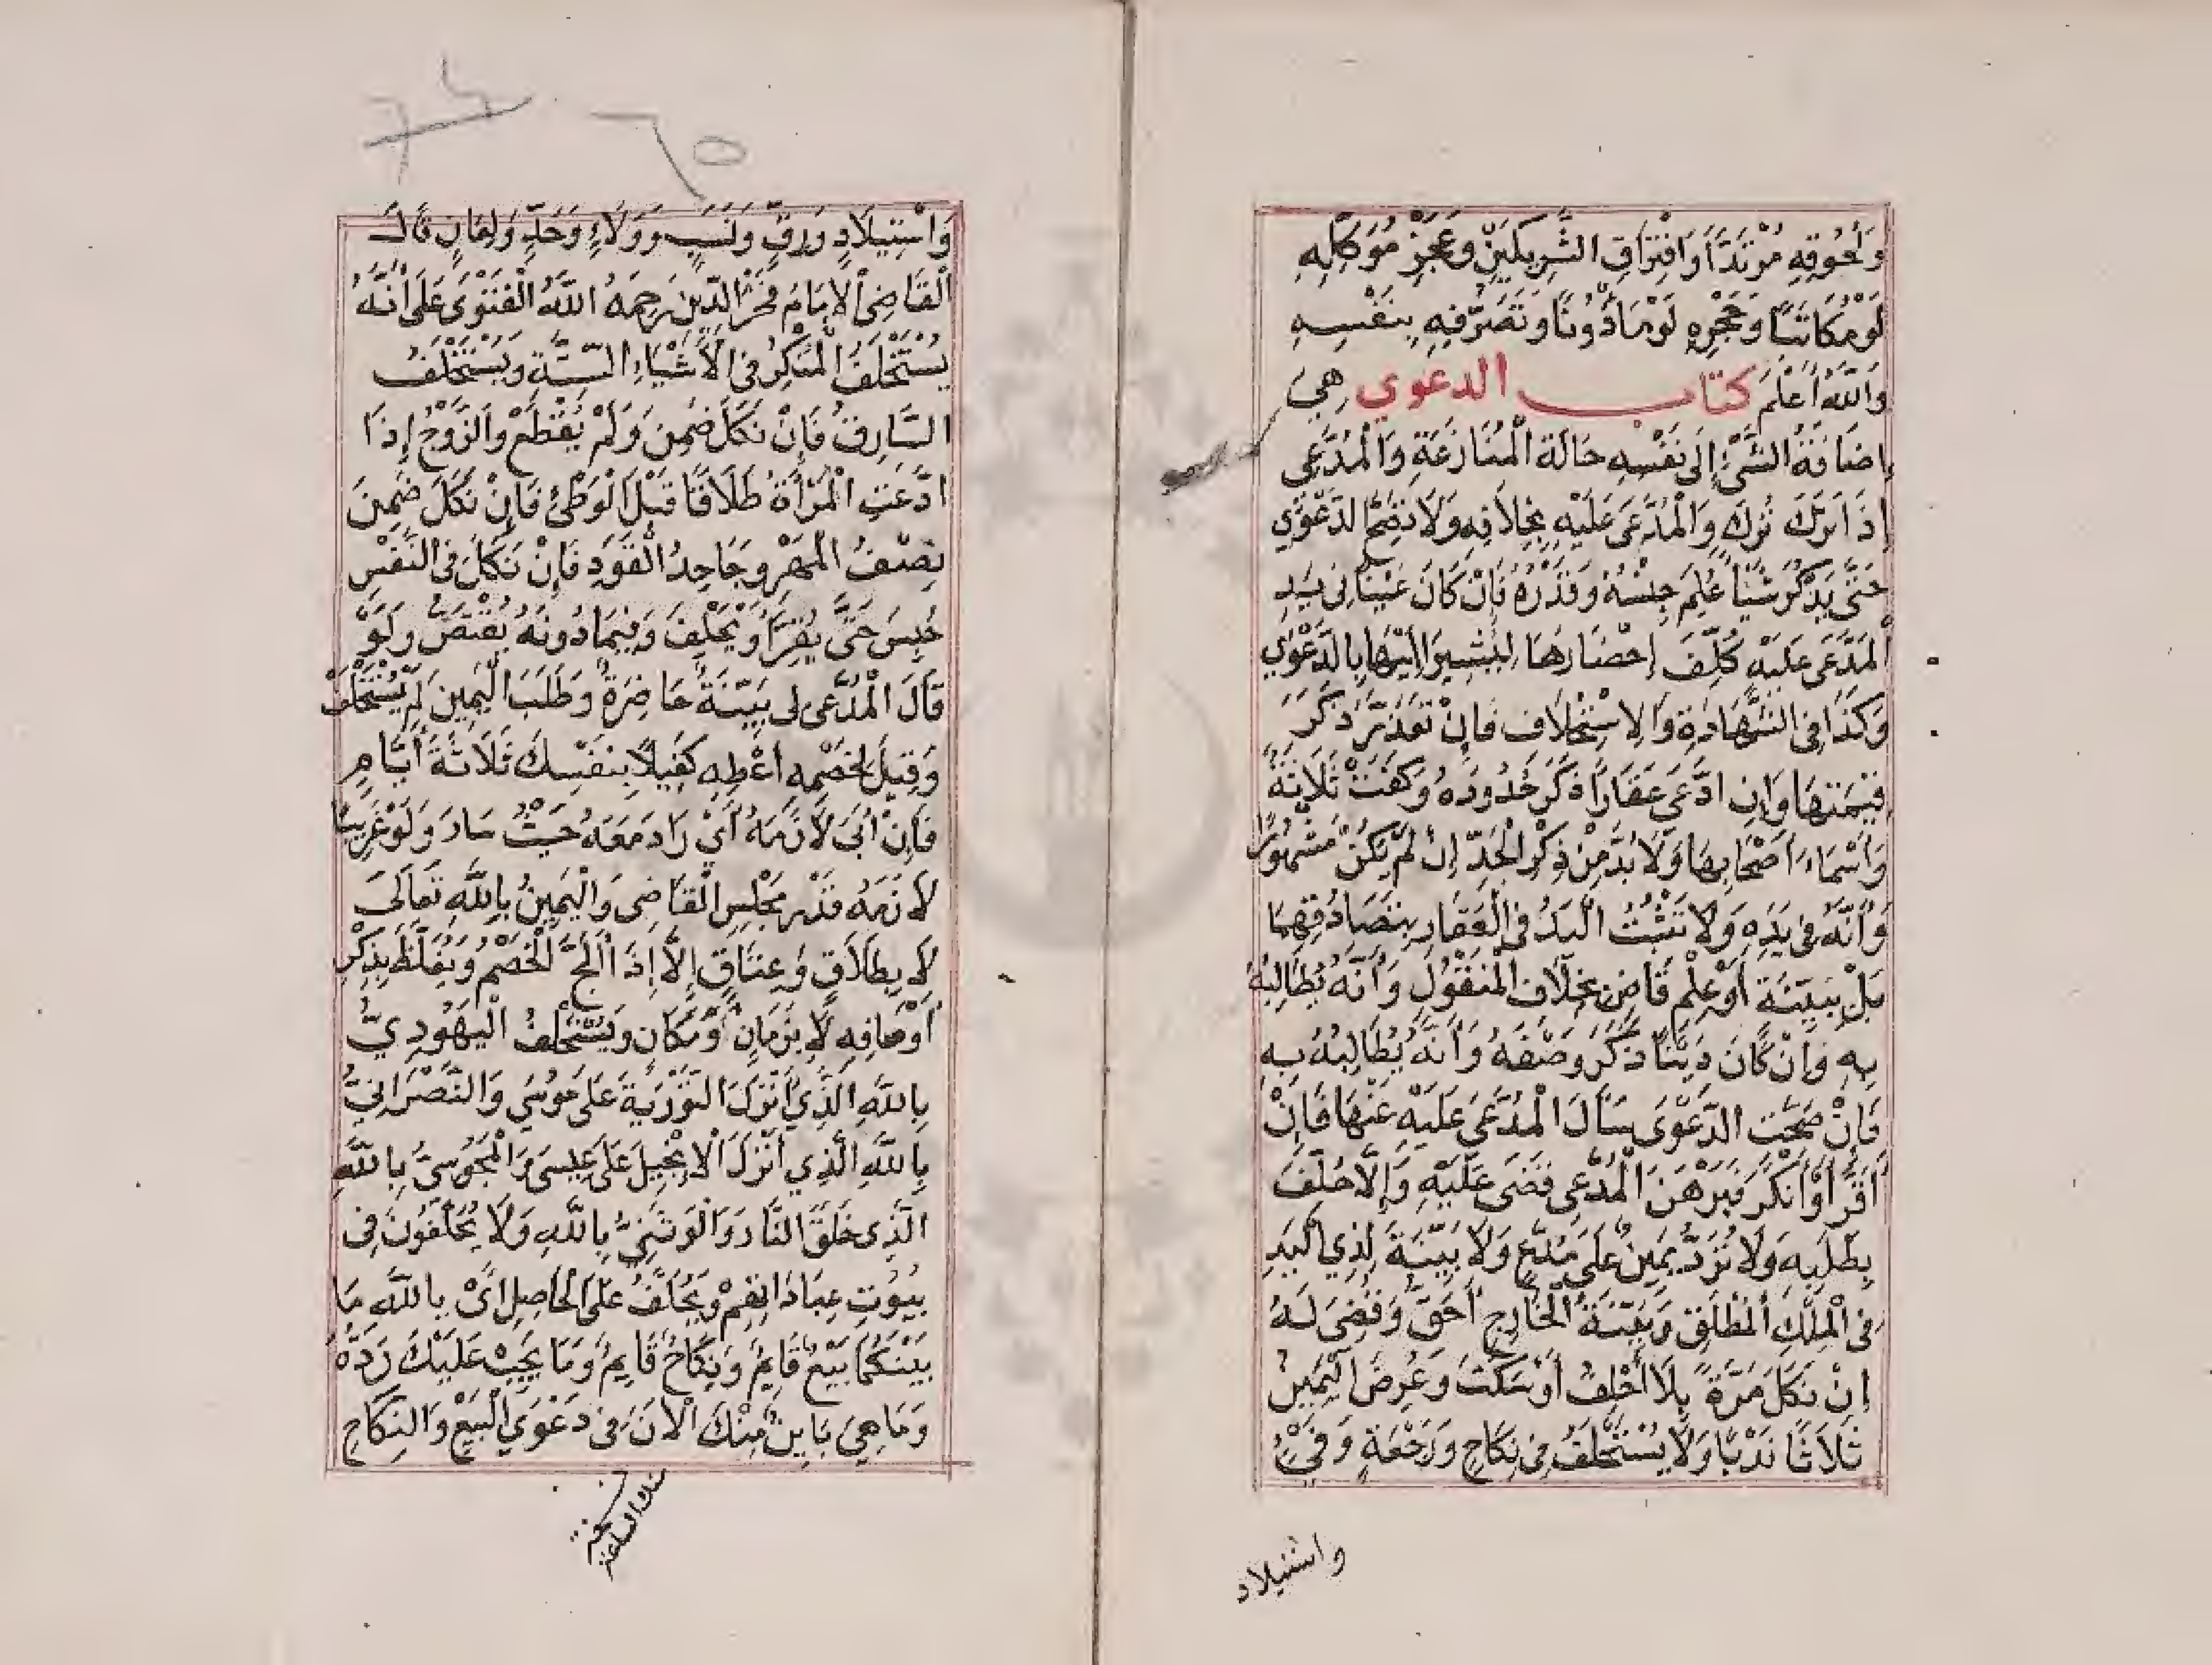 وَلُحُوقِهِ مُرْتَدًّا وَافْتِرَاقِ الشَّرِيكَيْنِ وَعَجْزِ مُوَكِّلِهِ
لَوْ مُكَاتَبًا وَحَجْرِهِ لَوْ مَأْذُونًا وَتَصَرُّفِهِ بِنَفْسِهِ
وَاللّٰهُ أَعْلَمُ كتاب الدعوي هِيَ
إِضَافَةُ الشَّيْءِ إِلَى نَفْسِهِ حَالَةَ الْمُنَازَعَةِ وَالْمُدَّعِي
إِذَا تَرَكَ تُرِكَ وَالْمُدَّعَى عَلَيْهِ بِخِلَافِهِ وَلَا تَصِحُّ الدَّعْوَي
حَتَّى يَذْكُرَ شَيْئًا عُلِمَ جِنْسُهُ وَقَدْرُهُ فَإِنْ كَانَ عَيْنًا فِي يَدِ
الْمُدَّعَى عَلَيْهِ كُلِّفَ إِحْضَارَهَا لِيُشِيرَ إِلَيْهَا بِالدَّعْوَي
وَكَذَا فِي الشَّهَادَةِ وَالِاسْتِحْلَافِ فَإِنْ تَعَذَّرَ ذَكَرَ
قِيمَتَهَا وَإِنِ ادَّعَى عَقَارًا ذَكَرَ حُدُودَهُ وَكَفَتْ ثَلَاثَةٌ
وَأَسْمَاءَ أَصْحَابِهَا وَلَا بُدَّ مِنْ ذِكْرِ الْجَدِّ إِنْ لَمْ يَكُنْ مَشْهُورًا
وَأَنَّهُ فِي يَدِهِ وَلَا تَثْبُتُ الْيَدُ فِي الْعَقَارِ بِتَصَادُقِهِمَا
بَلْ بِبَيِّنَةٍ أَوْ عِلْمِ قَاضٍ بِخِلَافِ الْمَنْقُولِ وَأَنَّهُ يُطَالِبُهُ
بِهِ وَإِنْ كَانَ دَيْنًا ذَكَرَ وَصْفَهُ وَأَنَّهُ يُطَالِبُهُ بِهِ
فَإِنْ صَحَّتِ الدَّعْوَى سَأَلَ الْمُدَّعَى عَلَيْهِ عَنْهَا فَإِنْ
أَقَرَّ أَوْ أَنْكَرَ فَبَرْهَنَ الْمُدَّعِي قَضَى عَلَيْهِ وَإِلَّا حَلَفَ
بِطَلَبِهِ وَلَا تُرَدُّ يَمِينٌ عَلَى مُدَّعٍ وَلَا بَيِّنَةَ لِذِي الْيَدِ
فِي الْمِلْكِ الْمُطْلَقِ وَبَيِّنَةُ الْخَارِجِ أَحَقُّ وَقُضِيَ لَهُ
إِنْ نَكَلَ مَرَّةً بِلَا أَحْلِفُ أَوْ سَكَتَ وَعُرِضَ الْيَمِينُ
ثَلَاثًا نَدْبًا وَلَا يُسْتَحْلَفُ فِي نِكَاحٍ وَرَجْعَةٍ وَفَيْءٍ
واستيلاد
وَاسْتِيلَادٍ وَرِقٍّ وَنَسَبٍ وَوَلَاءٍ وَحَدٍّ وَلِعَانٍ قَالَ
الْقَاضِي الْإِمَامُ فَخْرُ الدِّينِ رَحِمَهُ اللّٰهُ الْفَتْوَى عَلَى أَنَّهُ
يُسْتَحْلَفُ الْمُنْكِرُ فِي الْأَشْيَاءِ السِّتَّةِ وَيُسْتَحْلَفُ
السَّارِقُ فَإِنْ نَكَلَ ضَمِنَ وَلَمْ يُقْطَعْ وَالزَّوْجُ إِذَا
ادَّعَتِ الْمَرْأَةُ طَلَاقًا قَبْلَ الْوَطْئِ فَإِنْ نَكَلَ ضَمِنَ
نِصْفَ الْمَهْرِ وَجَاحِدُ الْقَوَدِ فَإِنْ نَكَلَ فِي النَّفْسِ
حُبِسَ حَتَّى يُقِرَّ أَوْ يَحْلِفَ وَفِيمَا دُونَهُ يُقْتَصُّ وَلَوْ
قَالَ الْمُدَّعِي لِي بَيِّنَةٌ حَاضِرَةٌ وَطَلَبَ الْيَمِينَ لَمْ يُسْتَحْلَفْ
وَقِيلَ لِخَصْمِهِ أَعْطِهِ كَفِيلًا بِنَفْسِكَ ثَلَاثَةَ أَيَّامٍ
فَإِنْ أَبَى لَازَمَهُ أَيْ رَادَ مَعَهُ حَيْثُ سَارَ وَلَوْ غَرِيبًا
لَازَمَهُ قَدْرَ مَجْلِسِ الْقَاضِي وَالْيَمِينُ بِاللّٰهِ تَعَالَى
لَا بِطَلَاقٍ وَعِتَاقٍ إِلَّا إِذَا أَلَحَّ الْخَصْمُ وَيُغَلَّظُ بِذِكْرِ
أَوْصَافِهِ لَا بِزَمَانٍ أَوْ مَكَانٍ وَيُسْتَحْلَفُ الْيَهُودِيُّ
بِاللّٰهِ الَّذِي أَنْزَلَ التَّوْرٰيةَ عَلَى مُوسَي وَالنَّصْرَانِيُّ
بِاللّٰهِ الَّذِي أَنْزَلَ الْإِنْجِيلَ عَلَى عِيسَى وَالْمَجُوسِيُّ بِاللّٰهِ
الَّذِي خَلَقَ النَّارَ وَالْوَثَنِيُّ بِاللّٰهِ وَلَا يُحَلَّفُونَ فِي
بُيُوتِ عِبَادَاتِهِمْ وَيُحَلَّفُ عَلَى الْحَاصِلِ أَيْ بِاللّٰهِ مَا
بَيْنَكُمَا بَيْعٌ قَايِمٌ وَنِكَاحٌ قَايِمٌ وَمَا يَجِبُ عَلَيْكَ رَدُّهُ
وَمَا هِيَ بَايِنٌ مِنْكَ الْآنَ فِي دَعْوَي الْبَيْعِ وَالنِّكَاحِ